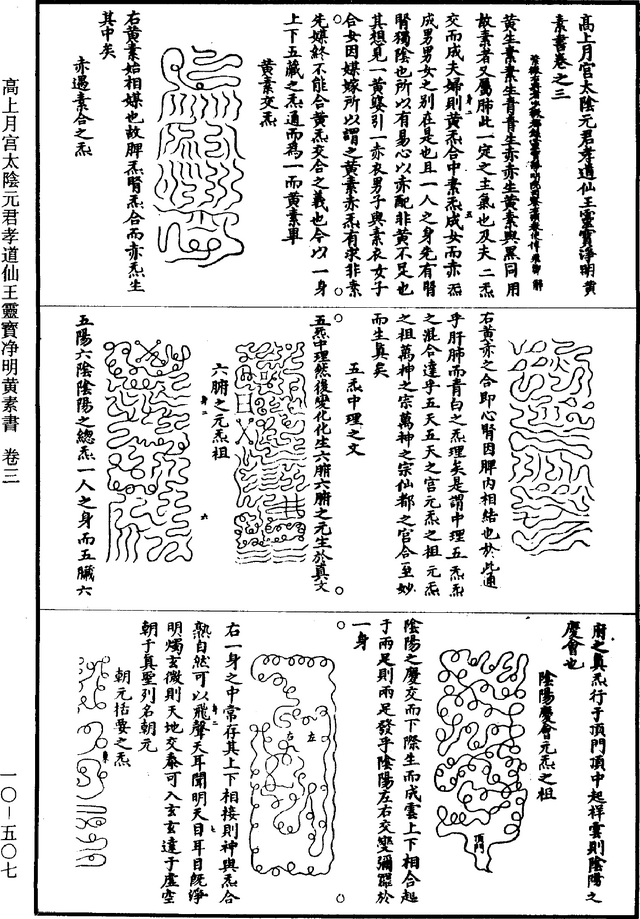 高上月宮太陰元君孝道仙王靈寶淨明黃
素書卷之三
黃生素素生青青生赤赤生黃素與黑同用
故素者又屬肺此一定之主氣也及夫二炁
交而成夫婦則黃炁合中素炁成女而赤炁
成男男女之別在是也且一人之身先有腎
腎獨陰也所以有易心以赤配非黃不足也
其想見一黃婆引一赤衣男子與素衣女子
合女因媒嫁所以謂之黃素赤炁有求非素
先媒終不能合黃炁交合之義也今以一身
上下五藏之炁通而爲一而黃素單
黃素交炁
右黃素始相媒也故脾炁腎炁合而赤炁生
其中矣
赤遇素合之炁
右黃赤之合即心腎因脾內相結也於此通
乎肝肺而青白之炁理矣是謂中理五炁炁
之混合達乎五天五天之宮元炁之祖元炁
之祖萬神之宗萬神之宗仙都之官合至妙
而生真矣
五炁中理之文
五炁中理然後變化化生六腑六腑之元生於真文
六腑之元炁祖
五陽六陰陰陽之總炁一人之身而五臟六
府之真炁行于頂門頂中起祥雲則陰陽之
慶會也
陰陽慶會元炁之祖
頂門
陰陽之慶交而下際生而成雲上下相合起
于兩足則兩足發乎陰陽左右交變彌羅於
一身
左
右
右一身之中常存其上下相接則神與炁合
熟自然可以飛聲天耳聞明天目耳目既淨
明燭玄微則天地交泰可入玄玄達于虛空
朝于真聖列名朝元
朝元括要之炁
高上月宮太陰元君孝道仙王靈寶净明黃素書 卷三
一〇-五〇七